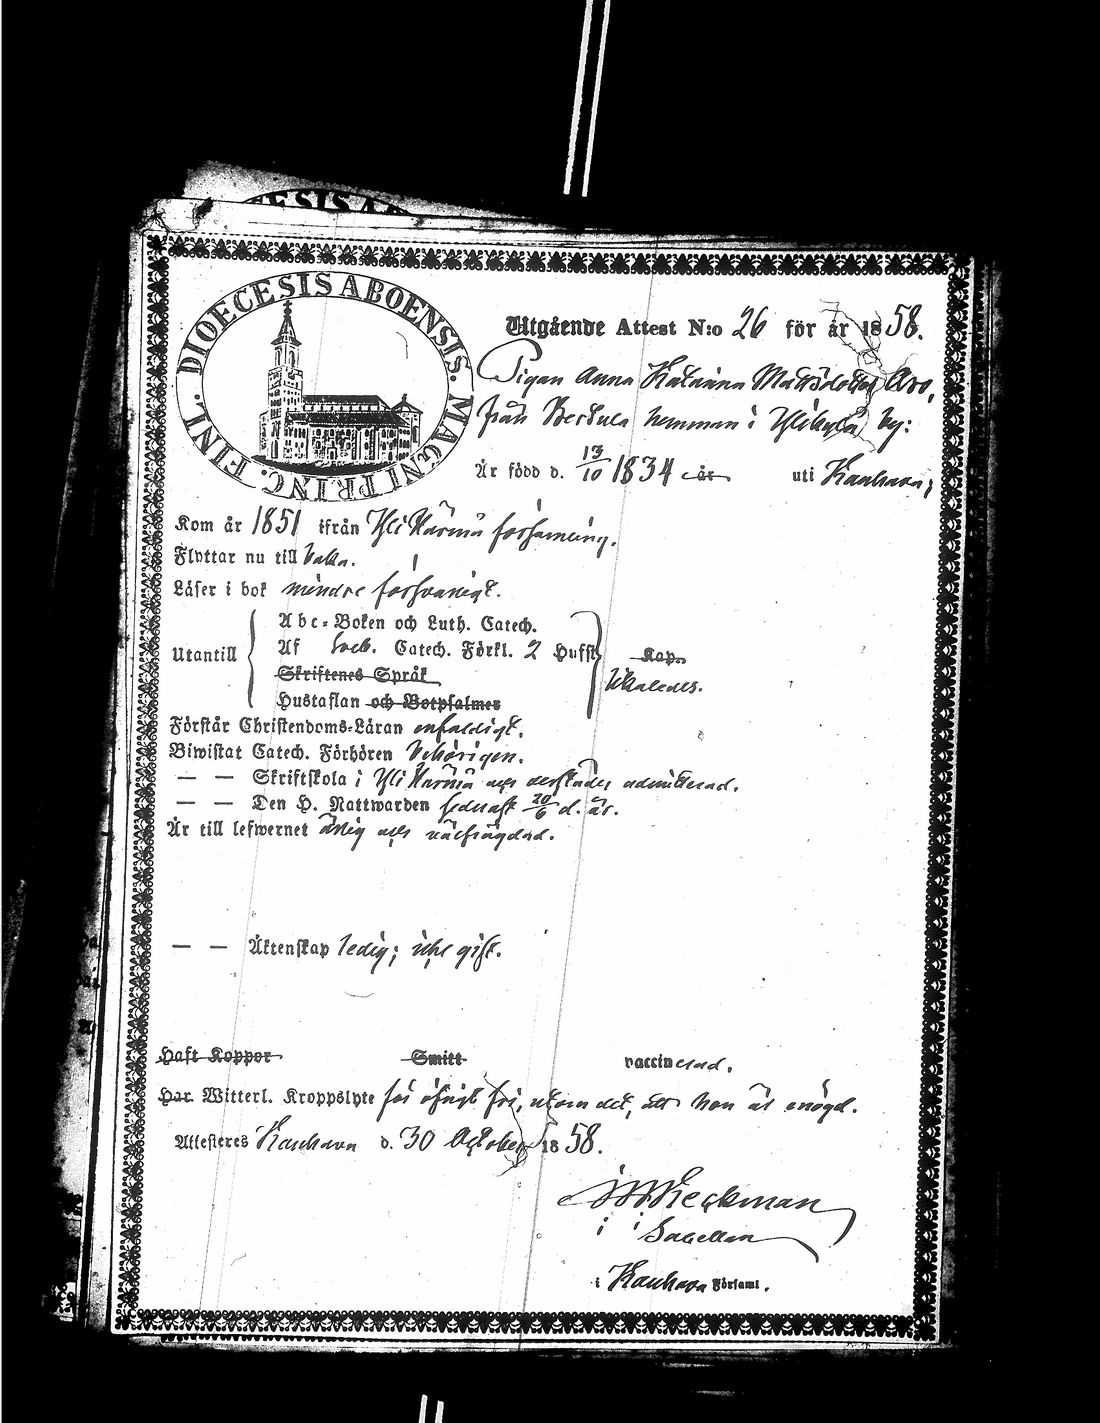 ESIS A
DIOECESIS ABOENSIS. MAGNI PRINC. FINL.
Utgående Attest N:o 26 för år 1858.
Pigan Anna Katarina Mattsdotter Aro,
från hemman i Ylikylä by:
Är född d. 13/10 1834 år uti Kauhava;
Kom år 1851 ifrån Yli Härmä församling.
Flyttar nu till
Läser i bok mindre försvarligt.
Abc-Boken och Luth. Catech.
Utantill Af Sveb. Catech. Förkl. 2 Hufst Kap.
Skriftenes Språk
Hustaflan och Botpsalmer
Förstår Christendoms-Läran enfaldigt.
Biwistat Catech. Förhören behörigen.
— — Skriftskola i Yli Härmä och derstädes admitterad.
— — Den H. Nattwarden sednast 20/6 d. år.
Är till lefwernet ärlig och välfrägdad.
— — Äktenskap ledig; icke gift.
Haft Koppor Smitt vaccinerad.
Har Witterl. Kroppslyte för öfrigt fri, utom det, att hon är enögd.
Attesteres Kauhava d. 30 October 1858.
i Kauhava Församl.